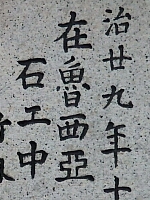 治廿九年十
在魯西亞
石工中